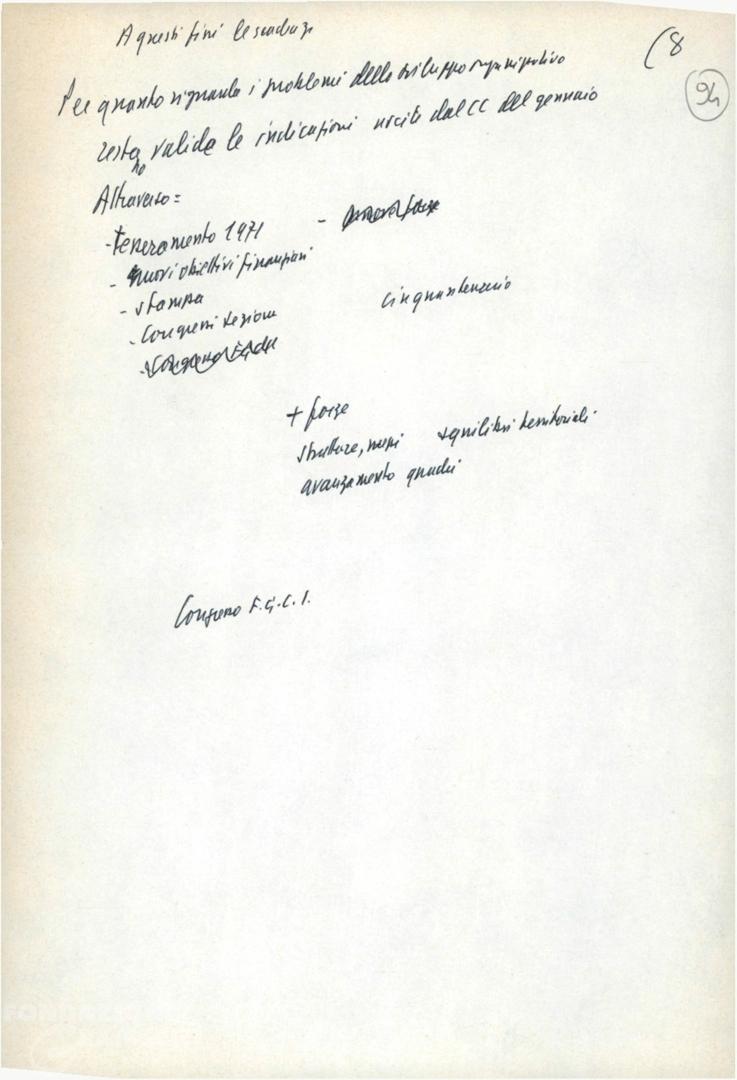 A questi fini le scadenze
(8
94
Per quanto riguarda i problemi dello sviluppo organizzativo
restano valide le indicazioni uscite dal CC del gennaio
Attraverso:
- tesseramento 1971
- nuovi obiettivi finanziari
- stampa
cinquantenario
- Congressi sezione
+ forze
strutture, mezzi + equilibri territoriali
avanzamento quadri
Congresso F.G.C.I.